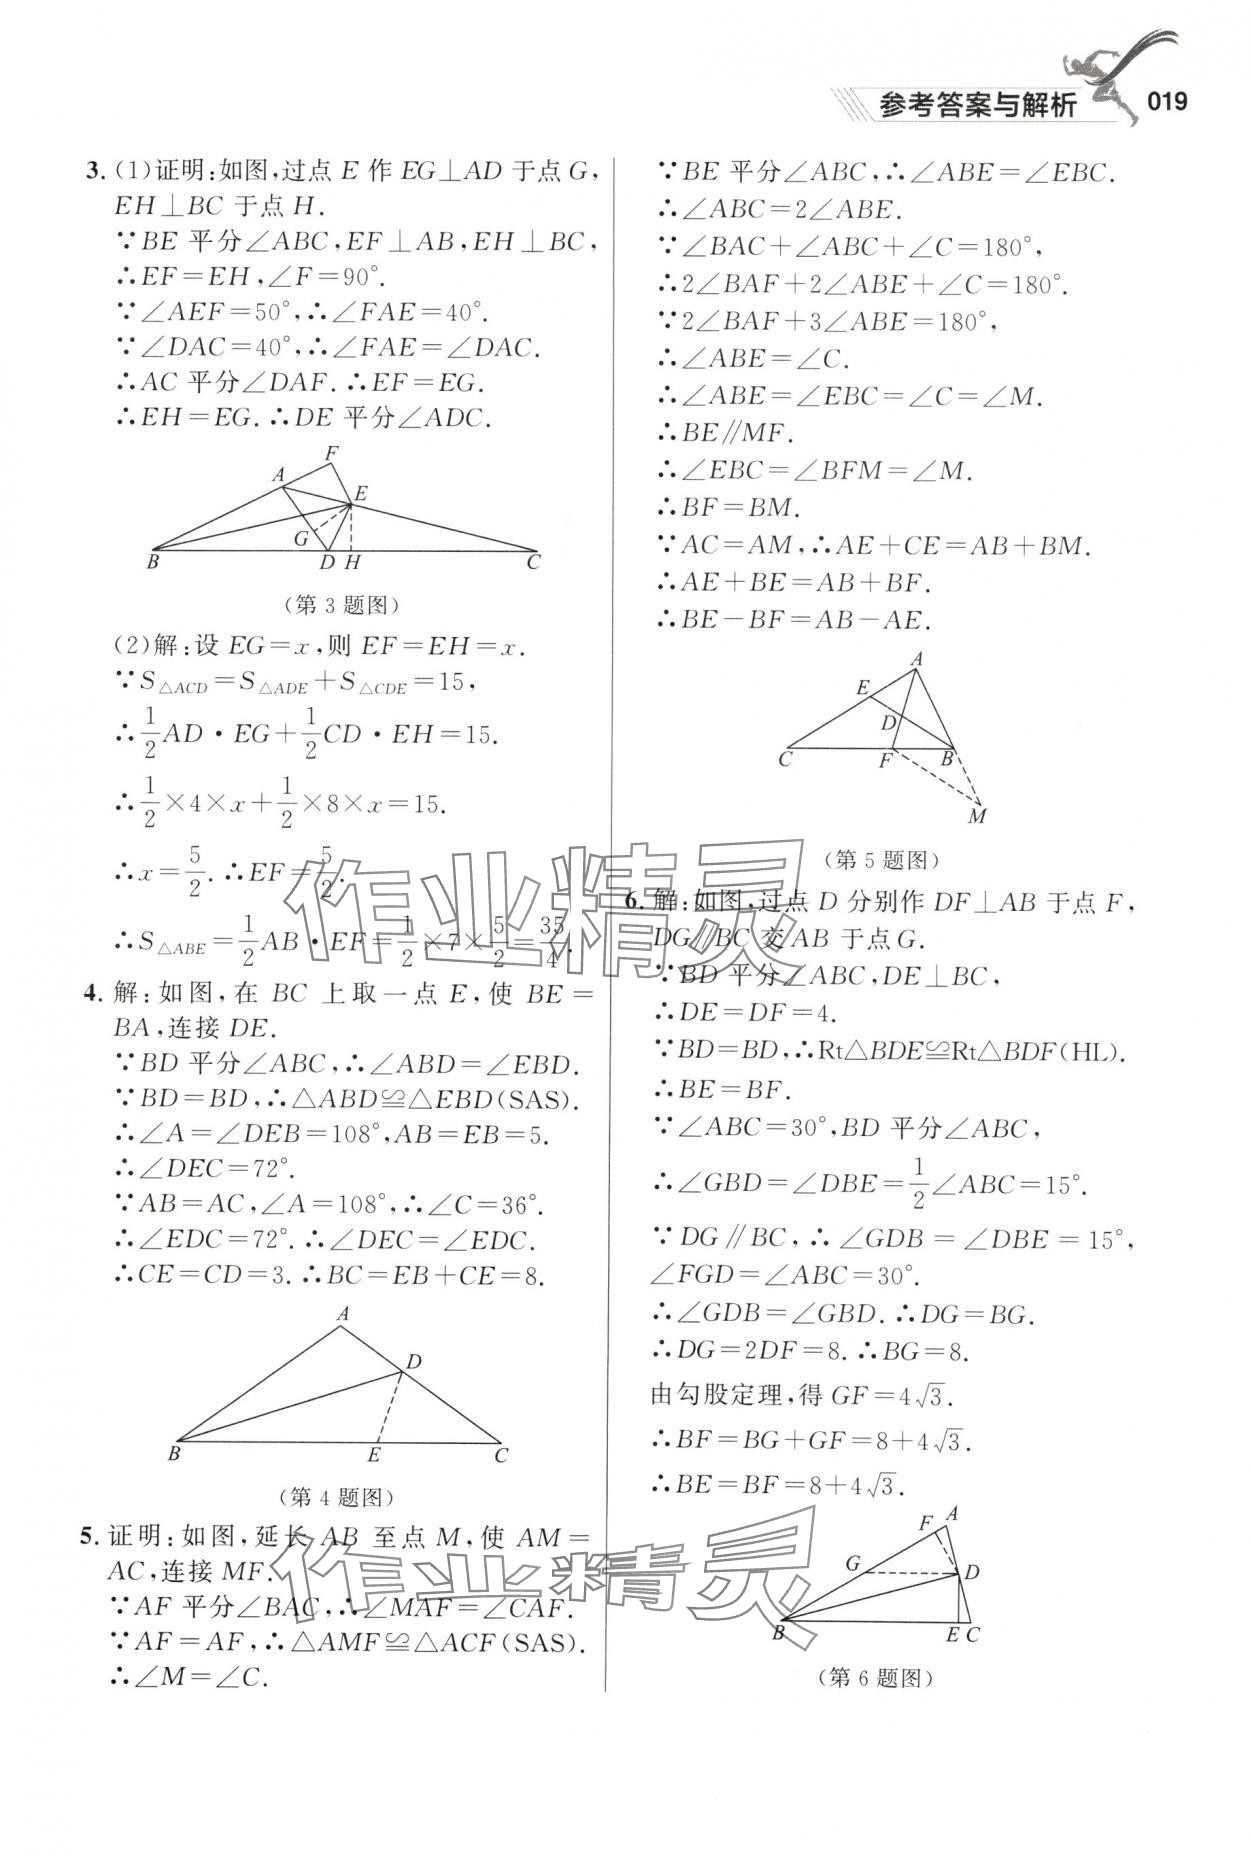 参考答案与解析 019
3. (1)证明:如图,过点 E 作 EG⊥AD 于点G,
EH⊥BC 于点 H.
∵BE 平分∠ABC,EF⊥AB,EH⊥BC,
∴EF=EH,∠F=90°.
∵∠AEF=50°,∴∠FAE=40°.
∵∠DAC=40°,∴∠FAE=∠DAC.
∴AC 平分∠DAF.∴EF=EG.
∴EH=EG.∴DE 平分∠ADC.
F
A
E
G
B
D H
C
(第 3 题图)
(2)解:设 EG=x,则 EF=EH=x.
∵S△ACD=S△ADE+S△CDE=15,
∴1/2 AD·EG+1/2 CD·EH=15.
∴1/2×4×x+1/2×8×x=15.
∴x=5/2.∴EF=5/2.
∴S△ABE=1/2 AB·EF=1/2×7×5/2=35/4.
4. 解:如图,在 BC 上取一点 E,使 BE=
BA,连接 DE.
∵BD 平分∠ABC,∴∠ABD=∠EBD.
∵BD=BD,∴△ABD≌△EBD(SAS).
∴∠A=∠DEB=108°,AB=EB=5.
∴∠DEC=72°.
∵AB=AC,∠A=108°,∴∠C=36°.
∴∠EDC=72°.∴∠DEC=∠EDC.
∴CE=CD=3.∴BC=EB+CE=8.
A
D
B
E
C
(第 4 题图)
5. 证明:如图,延长 AB 至点 M,使 AM=
AC,连接 MF.
∵AF 平分∠BAC,∴∠MAF=∠CAF.
∵AF=AF,∴△AMF≌△ACF(SAS).
∴∠M=∠C.
∵BE 平分∠ABC,∴∠ABE=∠EBC.
∴∠ABC=2∠ABE.
∵∠BAC+∠ABC+∠C=180°,
∴2∠BAF+2∠ABE+∠C=180°.
∵2∠BAF+3∠ABE=180°,
∴∠ABE=∠C.
∴∠ABE=∠EBC=∠C=∠M.
∴BE∥MF.
∴∠EBC=∠BFM=∠M.
∴BF=BM.
∵AC=AM,∴AE+CE=AB+BM.
∴AE+BE=AB+BF.
∴BE-BF=AB-AE.
A
E
D
C
F
B
M
(第 5 题图)
6. 解:如图,过点 D 分别作 DF⊥AB 于点 F,
DG∥BC 交 AB 于点G.
∵BD 平分∠ABC,DE⊥BC,
∴DE=DF=4.
∵BD=BD,∴Rt△BDE≌Rt△BDF(HL).
∴BE=BF.
∵∠ABC=30°,BD 平分∠ABC,
∴∠GBD=∠DBE=1/2∠ABC=15°.
∵DG∥BC,∴∠GDB=∠DBE=15°,
∠FGD=∠ABC=30°.
∴∠GDB=∠GBD.∴DG=BG.
∴DG=2DF=8.∴BG=8.
由勾股定理,得 GF=4√3.
∴BF=BG+GF=8+4√3.
∴BE=BF=8+4√3.
F A
G
D
B
E C
(第 6 题图)
作业精灵
作业精灵